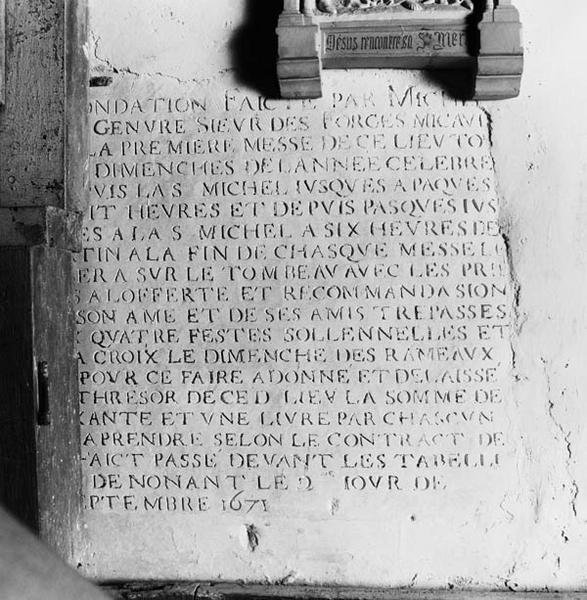 Jésus rencontre sa Ste Mère
ONDATION FAICTE PAR MICHEL
GENVRE SIEVR DES FORGES MICAVT
LA PREMIERE MESSE DE CE LIEV TO
DIMENCHES DE LANNEE CELEBRE
VIS LA S MICHEL IVSQVES A PAQVES
IT HEVRES ET DEPVIS PASQVES IVS
ES A LA S MICHEL A SIX HEVRES DE
TIN A LA FIN DE CHASQVE MESSE L
ERA SVR LE TOMBEAV AVEC LES PRI
S A LOFFERTE ET RECOMMANDASION
SON AME ET DE SES AMIS TREPASSES
QVATRE FESTES SOLLENNELLES ET
A CROIX LE DIMENCHE DES RAMEAVX
POVR CE FAIRE A DONNE ET DELAISSE
THRESOR DE CED LIEV LA SOMME DE
XANTE ET VNE LIVRE PAR CHASCVN
A PRENDRE SELON LE CONTRACT DE
FAICT PASSE DEVANT LES TABELLI
DE NONANT LE 2 IOVR DE
PTEMBRE 1671